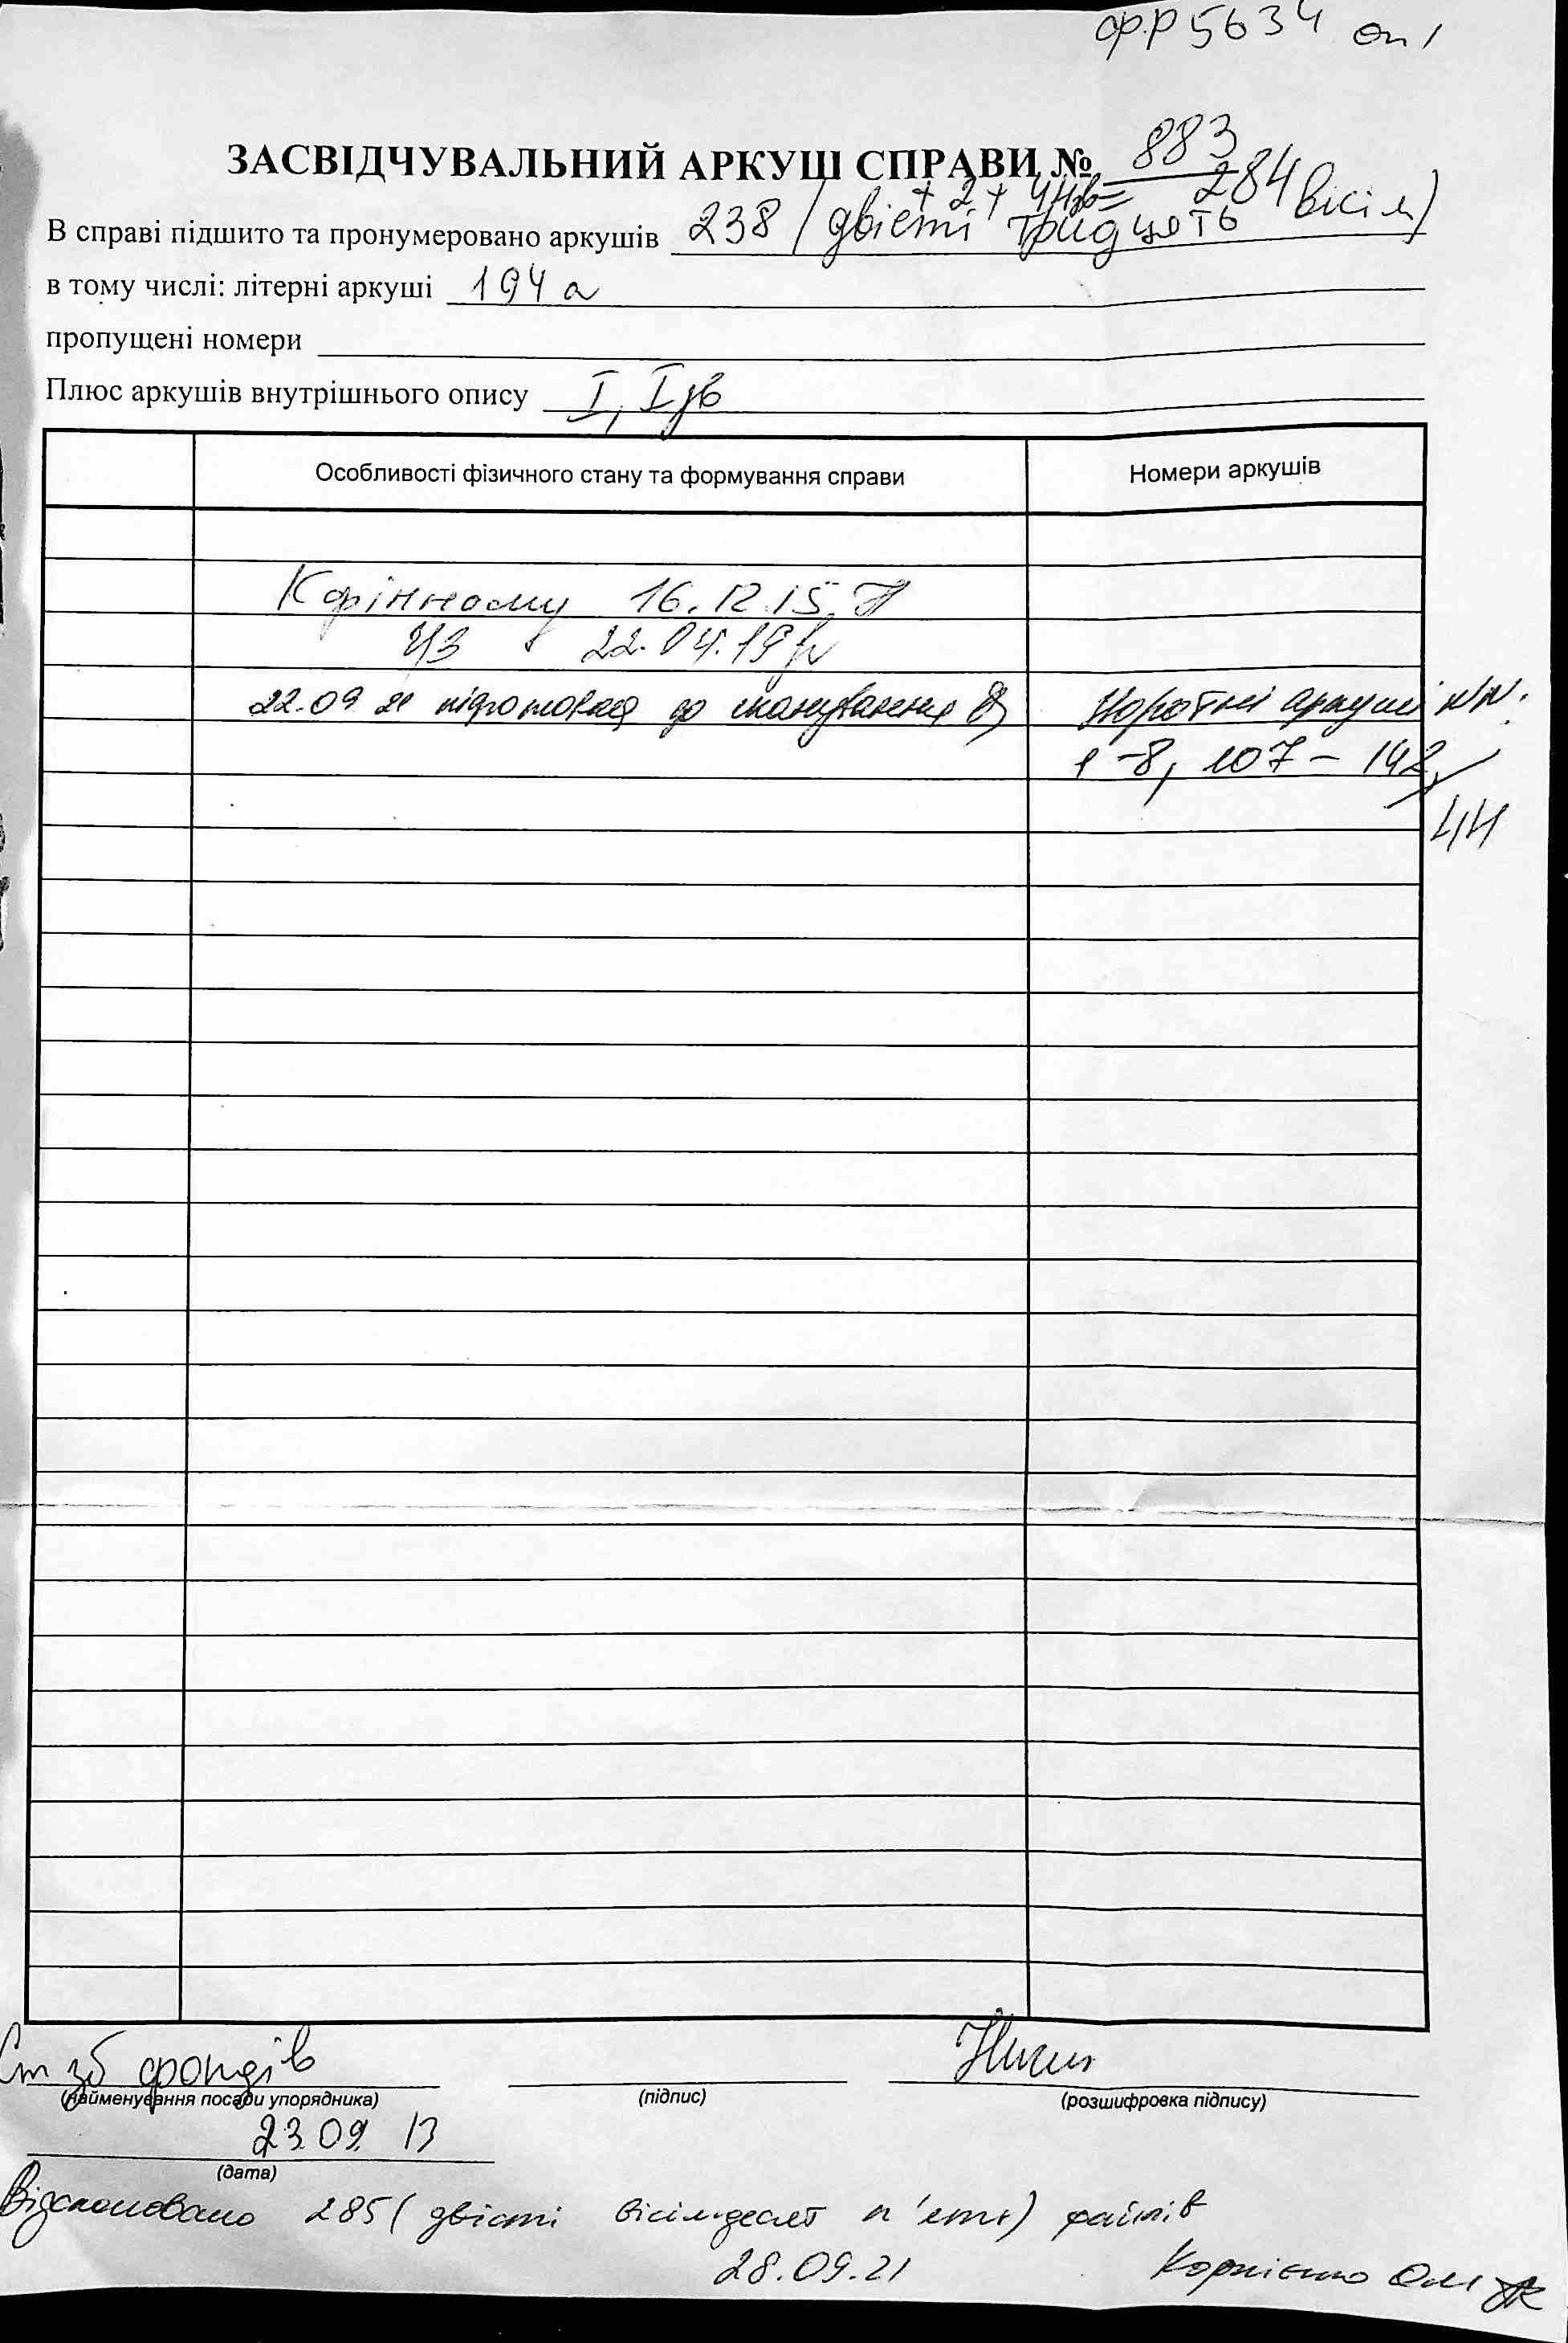 ф.Р 5634 оп 1
ЗАСВІДЧУВАЛЬНИЙ АРКУШ СПРАВИ № 883
+ 2 + 44зв = 284
В справі підшито та пронумеровано аркушів 238 (двісті тридцять вісім)
в тому числі: літерні аркуші 194 а
пропущені номери
Плюс аркушів внутрішнього опису I, Iзв
Особливості фізичного стану та формування справи Номери аркушів
К фінному 16.12.15
ЧЗ 22.04.19
22.09 21 підготовка до сканування Зворотні аркуші №№:
1-8, 107 - 142
44
Ст зб фондів
(найменування посади упорядника) (підпис) (розшифровка підпису)
23.09. 13
(дата)
Відскановано 285 (двісті вісімдесят п'ять) файлів
28.09.21 Корнієнко О.М.